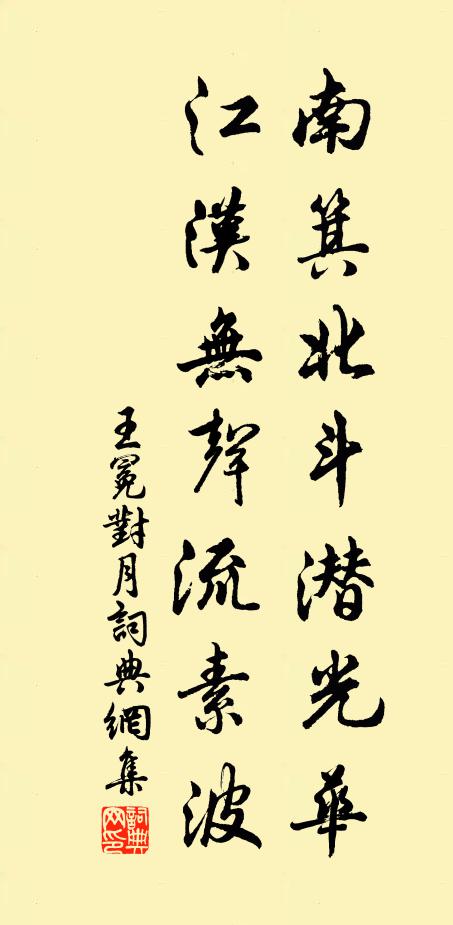 南箕北斗潜光華
江漢無聲流素波
王冕對月詞典網集
詞典
网印